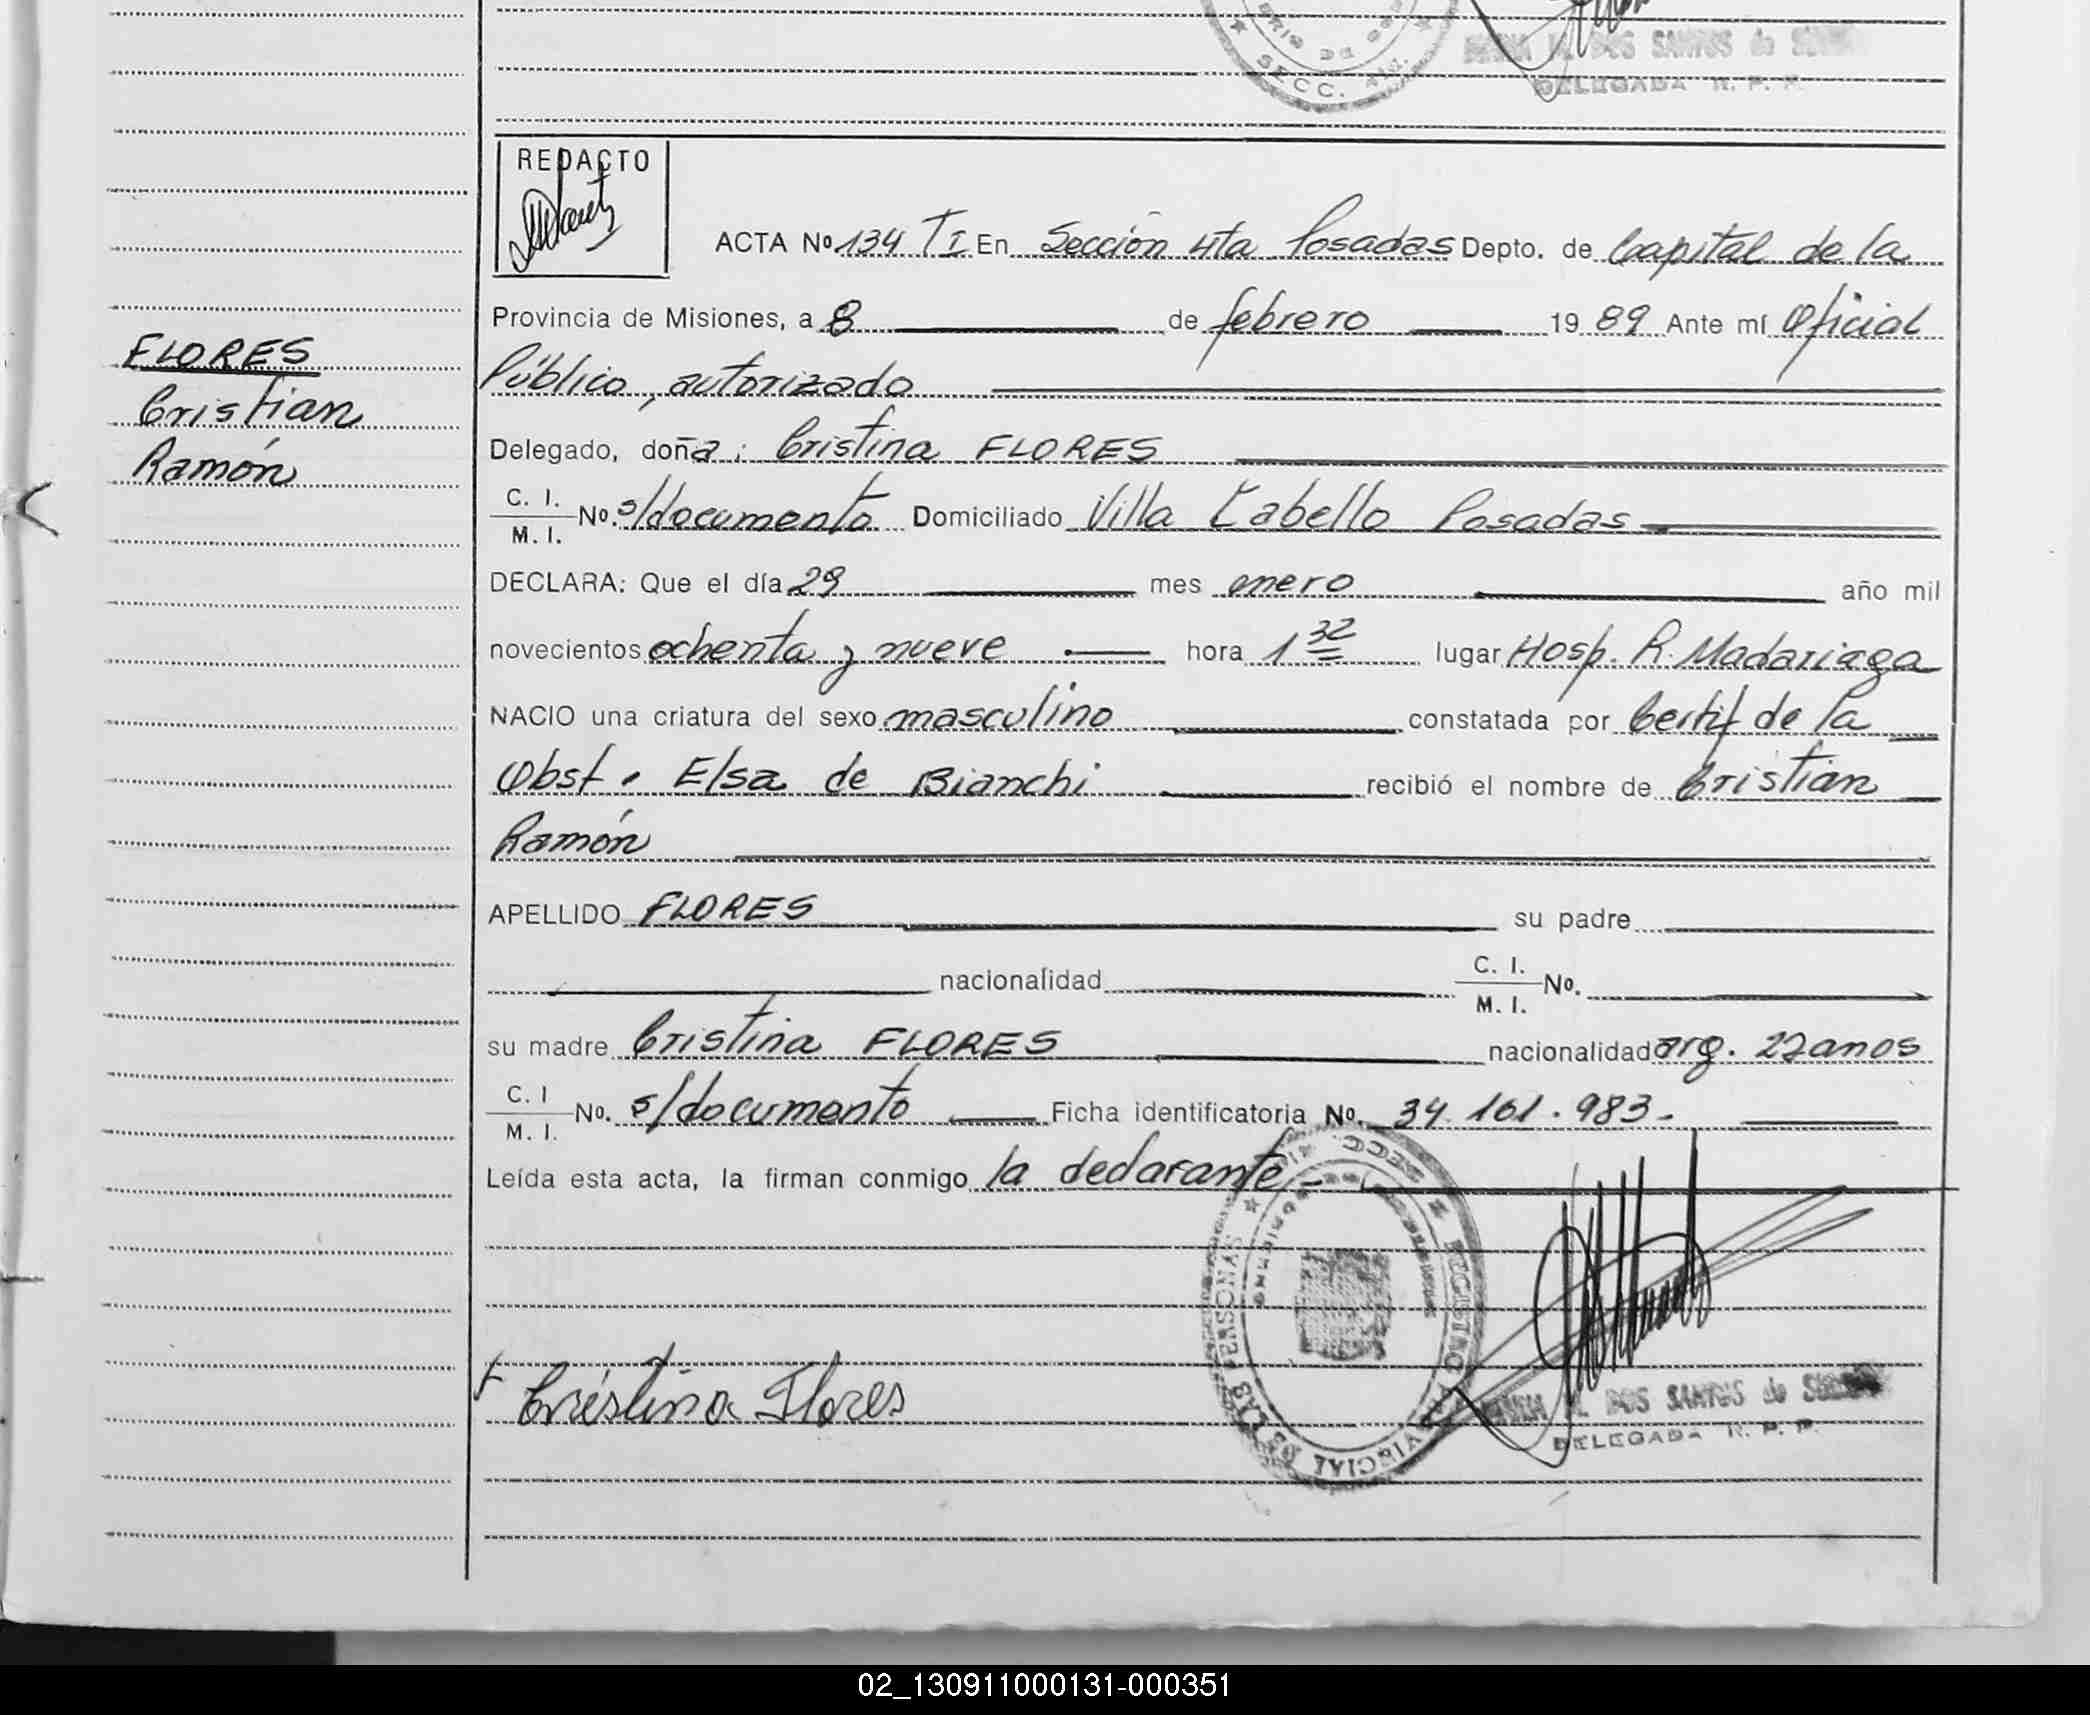 SECC. 4ta.
DOS SANTOS de
DELEGADA R. P. P.
REDACTO
ACTA Nº 134 TI En Sección 4ta Posadas Depto. de Capital de la
Provincia de Misiones, a 8 de febrero 19 89 Ante mí Oficial
Público, autorizado
Delegado, doña: Cristina FLORES
C. I.
M. I. No. s/documento Domiciliado Villa Cabello Posadas
DECLARA: Que el día 29 mes enero año mil
novecientos ochenta y nueve hora 1 32 lugar Hosp. R. Madariaga
NACIO una criatura del sexo masculino constatada por Certif de la
Obst. Elsa de Bianchi recibió el nombre de Cristian
Ramón
APELLIDO FLORES su padre
nacionalidad C. I.
M. I. No.
su madre Cristina FLORES nacionalidad arg. 27 anos
C. I
M. I. No. s/documento Ficha identificatoria No. 34.161.983.-
Leída esta acta, la firman conmigo la declarante.-
FLORES
Cristian
Ramón
Cristina Flores
REGISTRO PROVINCIAL DE LAS PERSONAS
SECC. 4ta.
DOS SANTOS de
DELEGADA R. P. P.
02_130911000131-000351